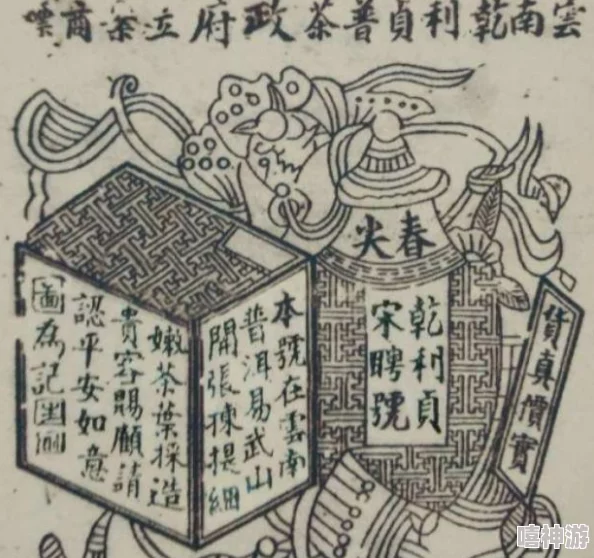 雲南乾利貞普茶政府立案商嘜
春尖
乾利貞
宋聘號
貨真價實
本號在雲南
普洱易武山
開張揀提細
嫩茶葉採造
貴客賜顧請
認平安如意
圖為記
嘻神游